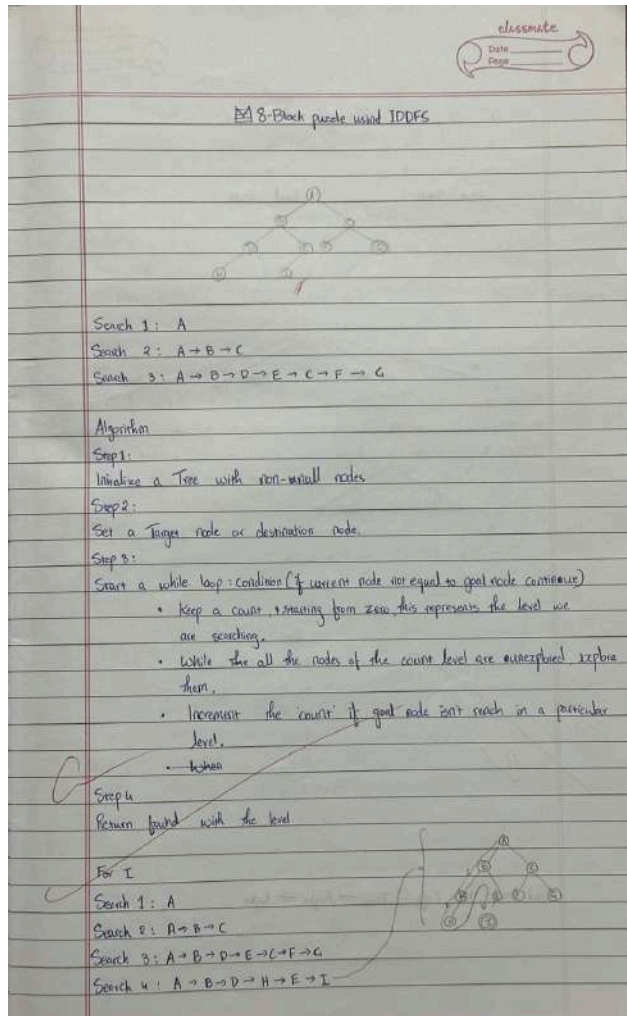 classmate
Date
Page
8-Block puzzle using IDDFS
A
Search 1: A
Search 2: A → B → C
Search 3: A → B → D → E → C → F → G
Algorithm
Step 1:
Initialize a Tree with non-null nodes
Step 2:
Set a Target node or destination node.
Step 3:
Start a while loop : condition (if current node not equal to goal node continue)
• Keep a count, starting from zero, this represents the level we
are searching.
• While the all the nodes of the count level are unexplored explore
them.
• Increment the 'count' if goal node isn't reach in a particular
level.
• When
Step 4
Return found with the level
For I
A
B C
D E F G
H I
Search 1: A
Search 2: A → B → C
Search 3: A → B → D → E → C → F → G
Search 4: A → B → D → H → E → I